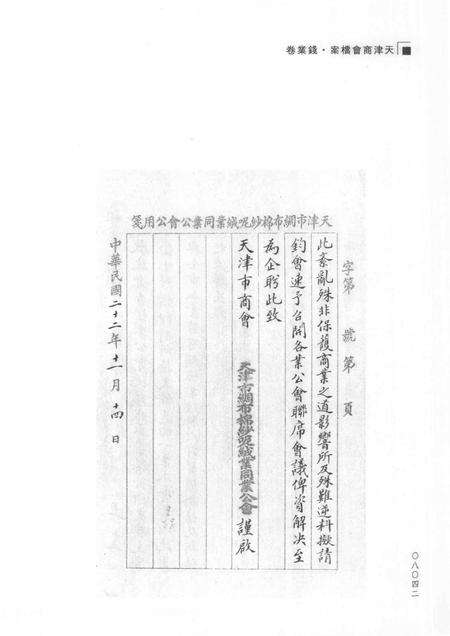 天津商會檔案·錢業卷
天津市綢布棉紗呢絨業同業公會公用箋
字第 號第 頁
此紊亂殊非保護商業之道影響所及殊難逆料擬請
鈞會速予召開各業公會聯席會議俾資解決至
為企盼此致
天津市商會
天津市綢布棉紗呢絨業同業公會謹啟
中華民國二十二年十一月十四日
〇八〇四二